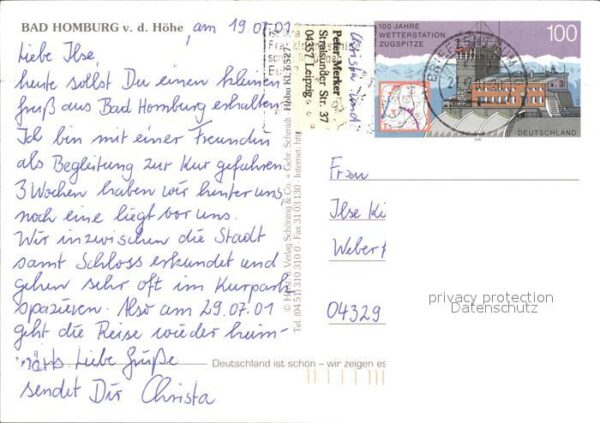 BAD HOMBURG v. d. Höhe, am 19.07.01
Liebe Ilse,
heute sollst Du einen kleinen
Gruß aus Bad Homburg erhalten.
Ich bin mit einer Freundin
als Begleitung zur Kur gefahren.
3 Wochen haben wir hinter uns
noch eine liegt vor uns.
Wir inzwischen die Stadt
samt Schloss erkundet und
gehen sehr oft im Kurpark
spazieren. Also am 29.07.01
geht die Reise wieder heim-
wärts. Liebe Grüße
sendet Dir Christa
Peter Merker
Stralsunder Str. 37
04357 Leipzig
Christa und
Verlag Schöning & Co. + Gebr. Schmidt
Tel. (04 51) 310 310 0 · Fax 31 03 130 · Internet:
100 JAHRE
WETTERSTATION
ZUGSPITZE
100
DEUTSCHLAND
Frau
Ilse Ki
Weber
04329
privacy protection
Datenschutz
Deutschland ist schön – wir zeigen es